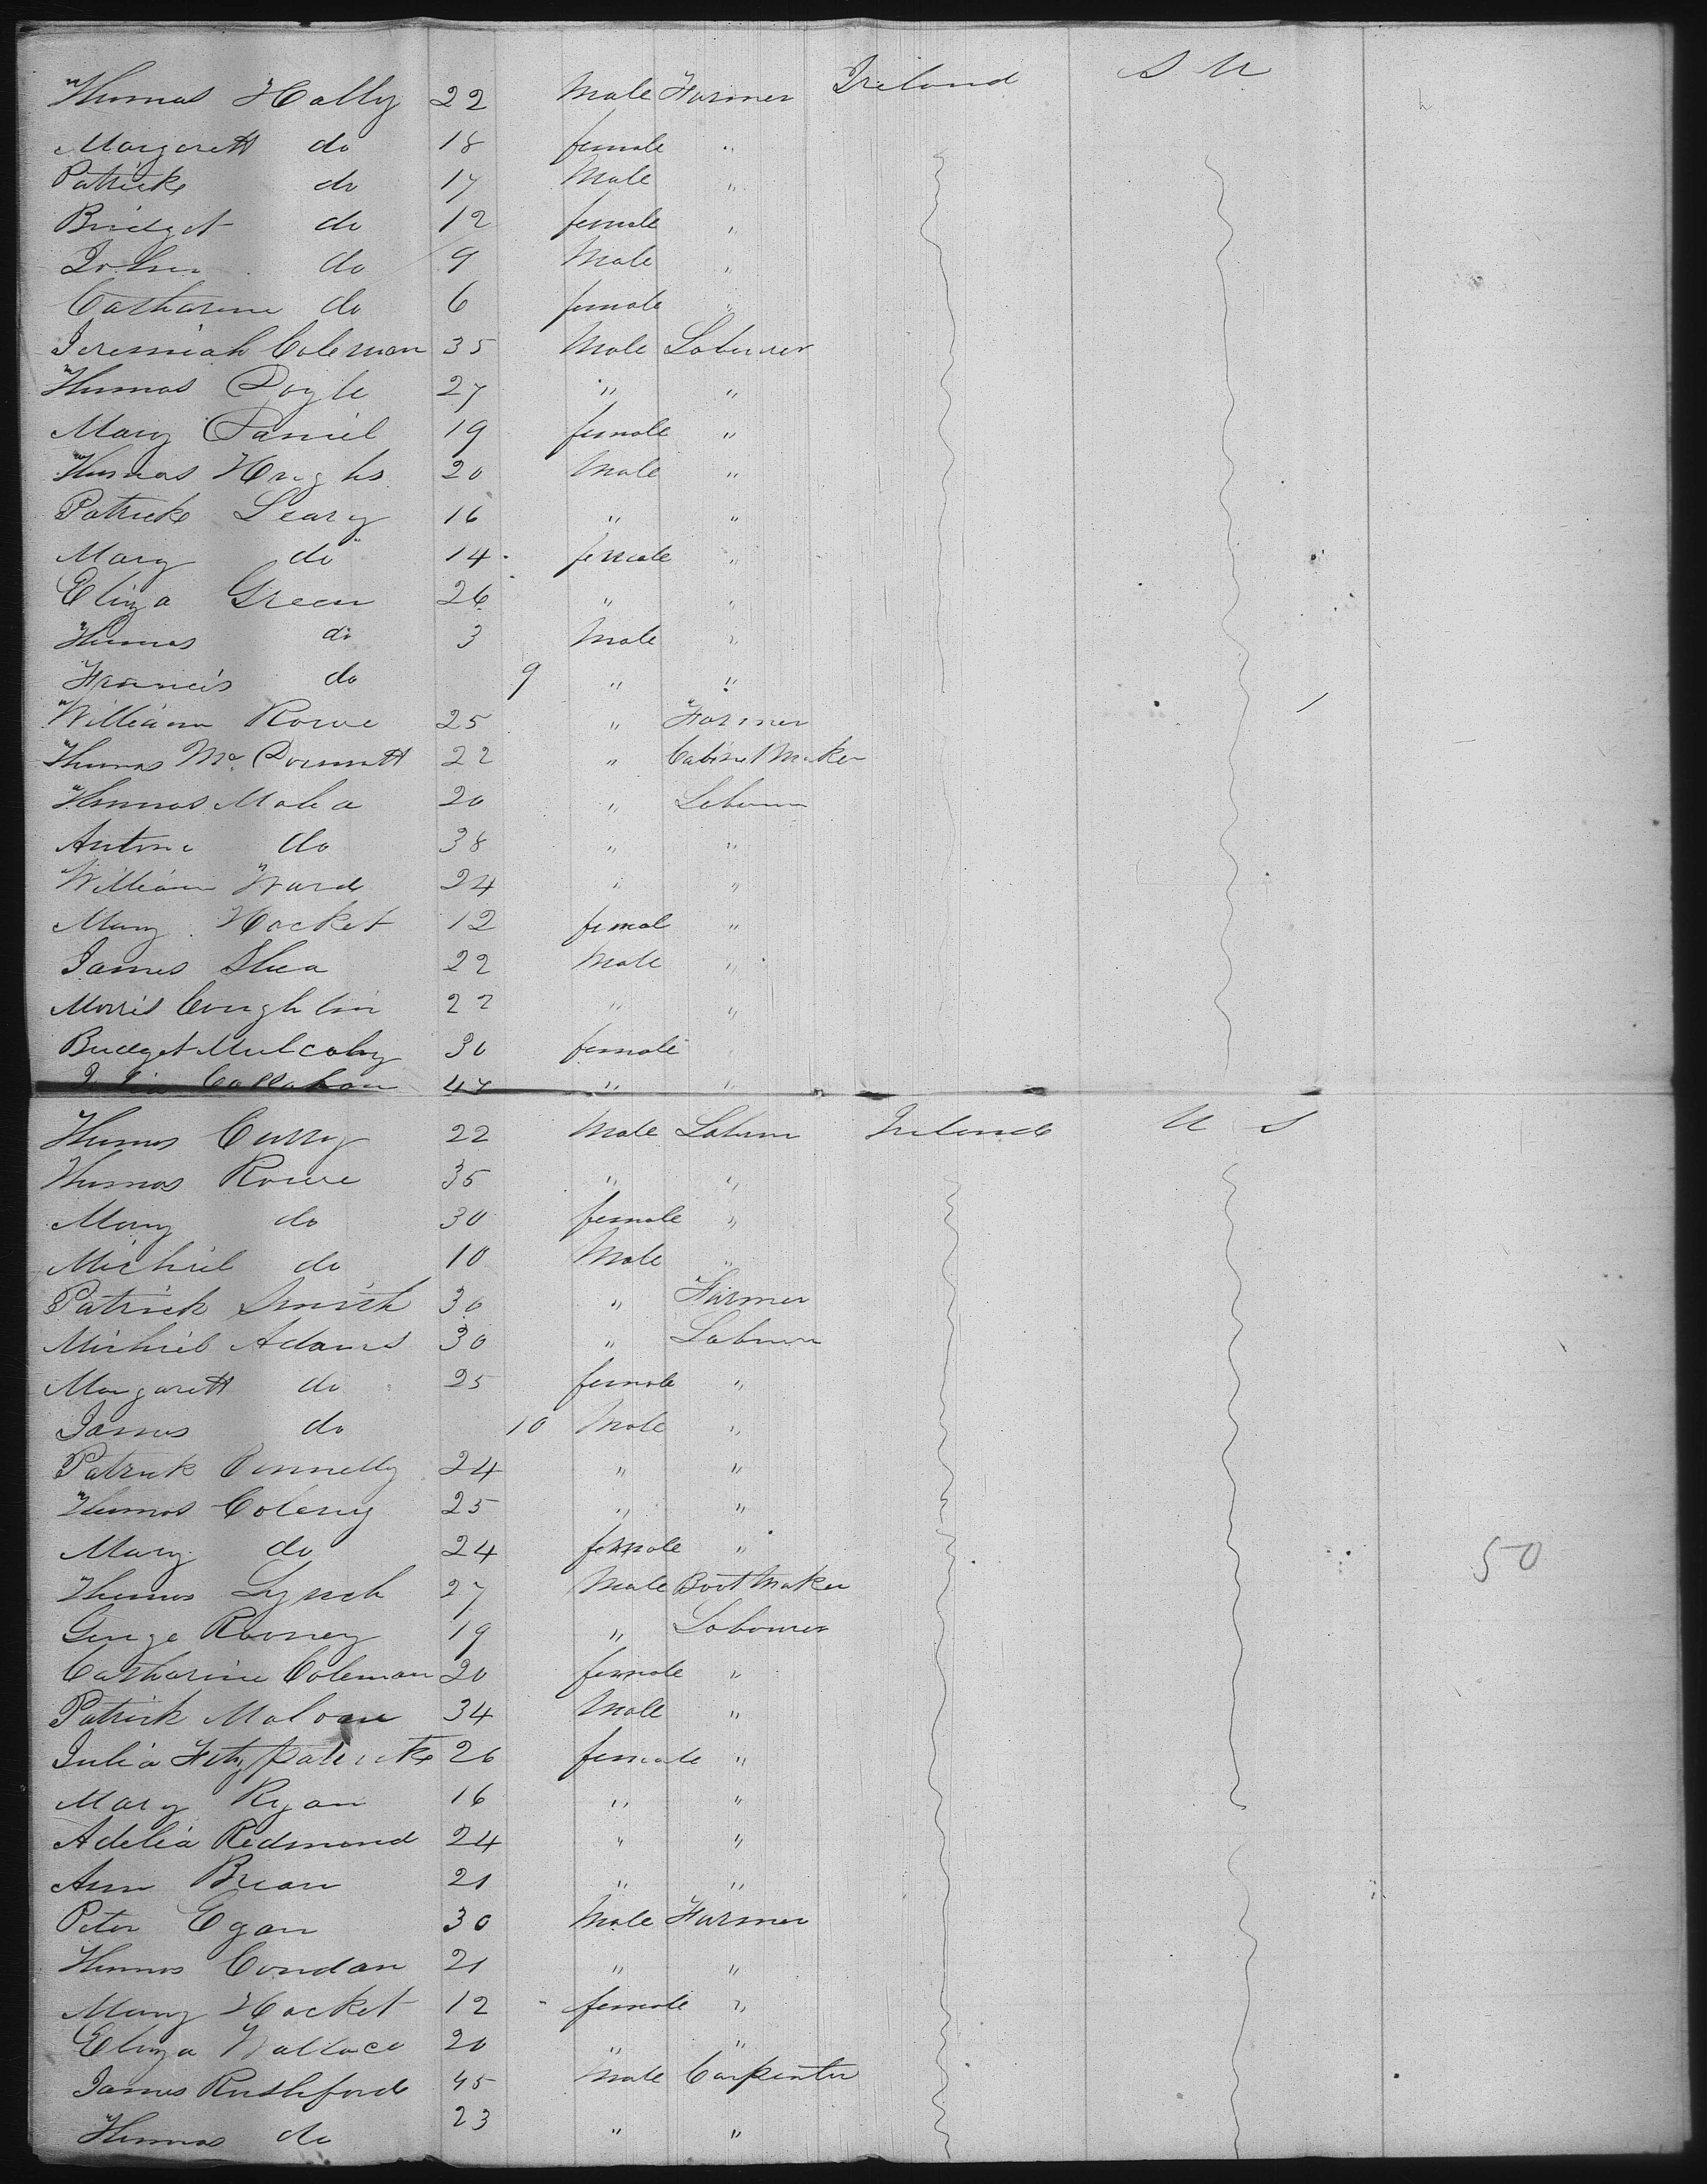 Thomas Hally 22 Male Farmer Ireland S U
Margarett do 18 female "
Patrick do 17 Male "
Bridget do 12 female "
John do 9 Male "
Catharine do 6 female "
Jeremiah Coleman 35 Male Labourer
Thomas Doyle 27 " "
Mary Daniel 19 female "
Thomas Hughs 20 Male "
Patrick Leary 16 " "
Mary do 14 female "
Eliza Green 26 " "
Thomas do 3 Male "
Francis do 9 " "
William Rowe 25 " Farmer
Thomas Mc Dormatt 22 " Cabinet Maker
Thomas Malia 20 " Labourer
Antone do 38 " "
William Ward 24 " "
Mary Hacket 12 femal "
James Shea 22 Male "
Morris Coughlin 22 " "
Bridget Mulcahy 30 female "
Callahan 47 " "
Thomas Curry 22 Male Labourer Ireland U S
Thomas Rowe 35 " "
Mary do 30 female "
Michiel do 10 Male "
Patrick Smith 30 " Farmer
Michiel Adams 30 " Labourer
Margarett do 25 female "
James do 10 Male "
Patrick Connelly 24 " "
Thomas Coleny 25 " "
Mary do 24 female " 50
Thomas Lynch 27 Male Boot Maker
George Rooney 19 " Labourer
Catharine Coleman 20 female "
Patrick Maloan 34 Male "
Julia Fitzpatrick 26 female "
Mary Ryan 16 " "
Adelia Redmond 24 " "
Ann Brean 21 " "
Peter Egan 30 Male Farmer
Thomas Condan 21 " "
Mary Hacket 12 female "
Eliza Wallace 20 " "
James Rushford 45 Male Carpenter
Thomas do 23 " "